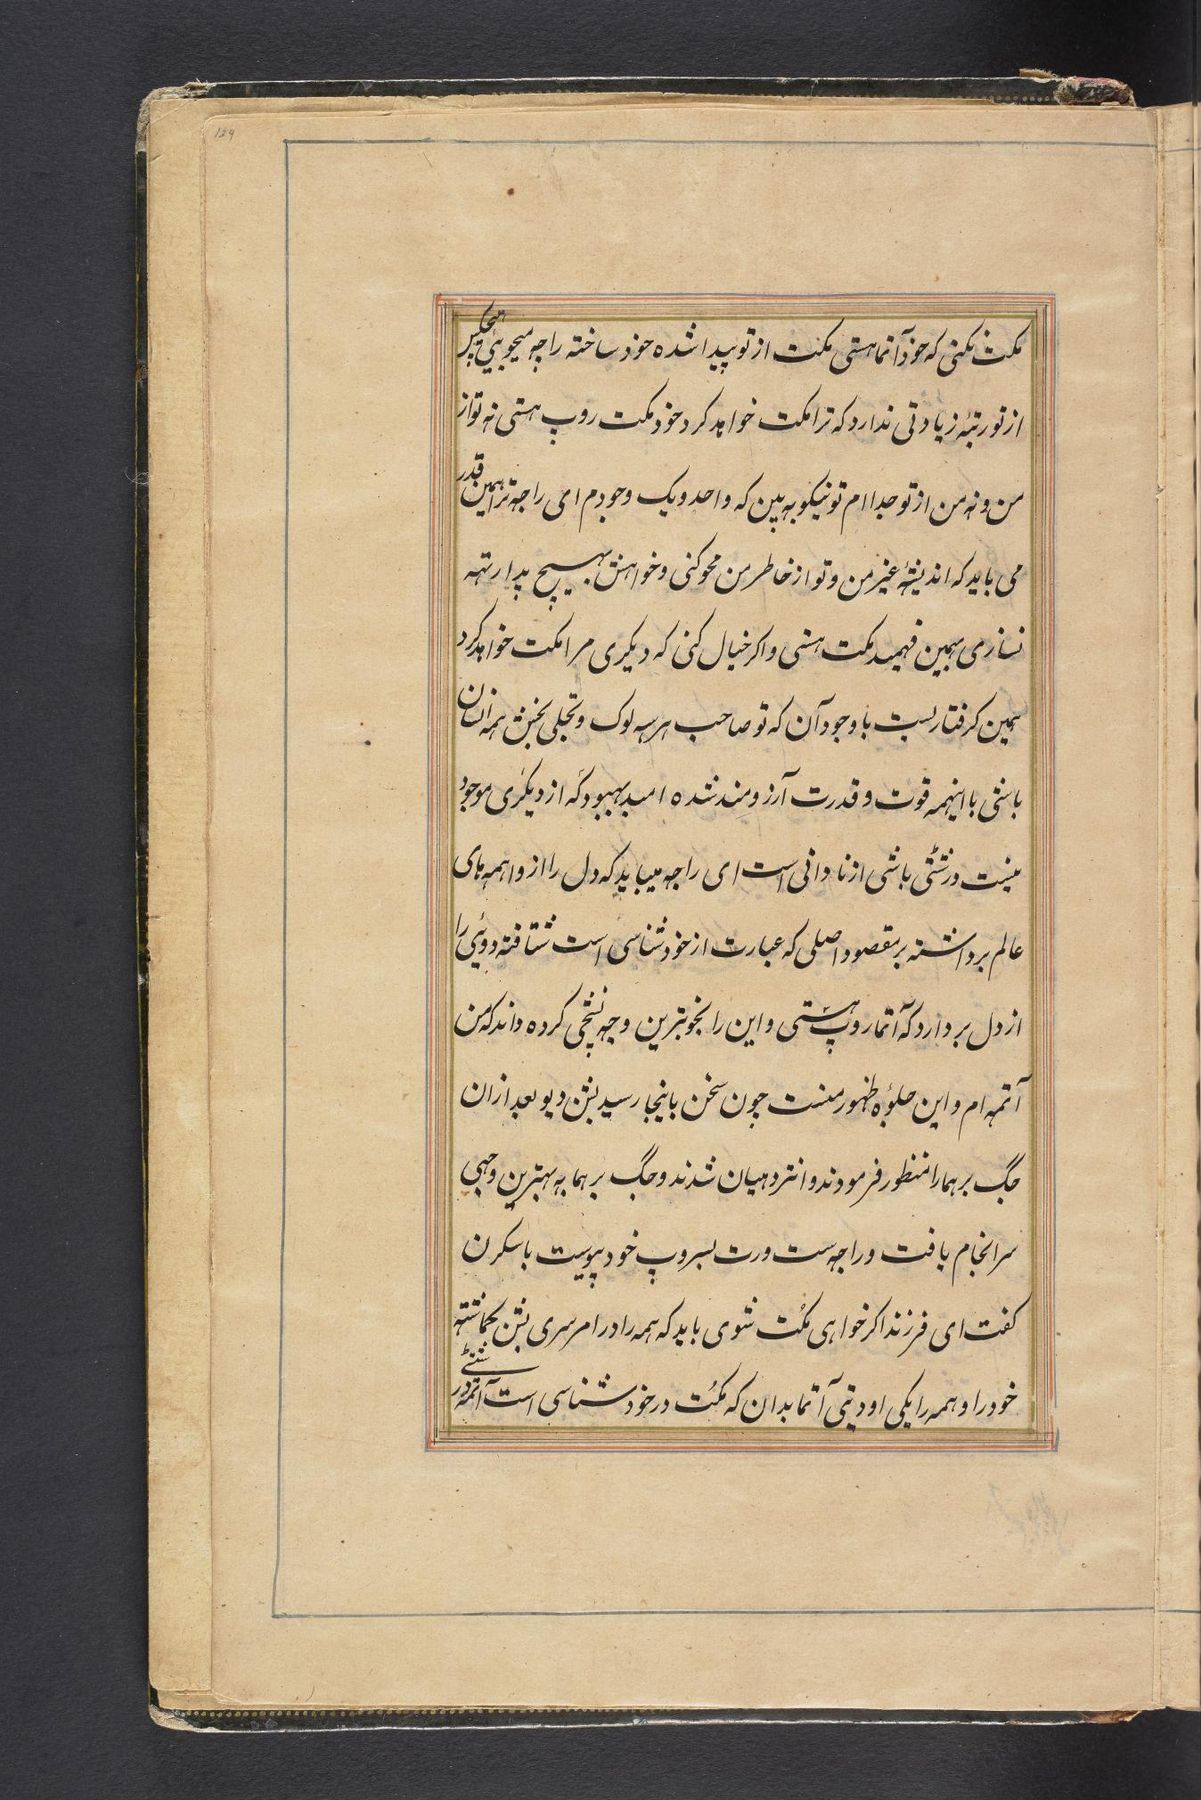 129
مکت نکنی که خود آتما هستی مکت از تو پیدا شده خود ساخته را چه میجوئی هیچکس
از تو رتبهٔ زیادتی ندارد که ترا مکت خواهد کرد خود مکت روپ هستی نه تو از
من و نه من از تو جدا ام تو نیکو به بین که واحد و یک وجودم ای راجه ترا همین قدر
می باید که اندیشهٔ غیر من و تو از خاطر من محو کنی و خواهش بهیچ پدارتهه
نسازی همین فهمید مکت هستی و اکر خیال کنی که دیکری مرا مکت خواهد کرد
همین کرفتاریست با وجود آن که تو صاحب هر سه لوک و تجلی بخش همه ازان
باشی با اینهمه قوت و قدرت آرزومند شده امید بهبود که از دیکری موجود
نیست ورشتی باشی از نادانی است ای راجه میباید که دل را از واهمه های
عالم برداشته بر مقصود اصلی که عبارت از خود شناسی است شتافته دوئی را
از دل بردارد که آتما روپ هستی و این را بخوبترین وجه نشچی کرده داند که من
آتمه ام و این جلوهٔ ظهور منست چون سخن باینجا رسید بشن دیو بعد ازان
جگ برهما را منظور فرمودند و انتردهیان شدند و جگ برهما به بهترین وجهی
سرانجام یافت و راجه ست ورت بسروپ خود پیوست باسکرن
کفت ای فرزند اکر خواهی مکت شوی باید که همه را در امر سری بشن کماشته
خود را و همه را یکی اودیتی آتما بدان که مکت در خود شناسی است آتمه در